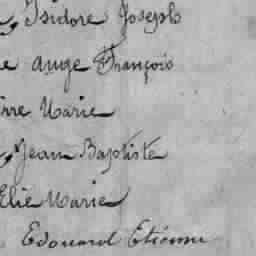 , Isidore Joseph
e ange François
rre Marie
, Jean Baptiste
Elie Marie
Edouard Etienne